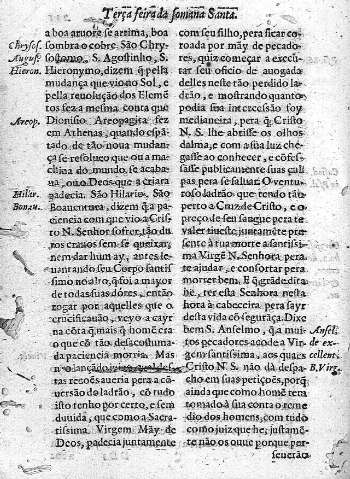 Terça feira da somana Santa.
a boa aruore se arrima, boa
sombra o cobre. São Chry-
sostomo, S. Agostinho, S.
Hieronymo, dizem q̃ pella
mudança que vio no Sol, e
pella reuolução dos Elemẽ
tos fez a mesma conta que
Dionisio Areopagita fez
em Athenas, quando espã-
tado de tão noua mudan-
ça se resolueo que ou a ma-
china do mundo, se acaba-
ua, ou o Deos que a criara
padecia. São Hilario, São
Boauentura, dizem q̃ a pa-
ciencia com que vio a Cris-
to N. Senhor sofrer, tão du
ros crauos sem se queixar,
nem dar hum ay, antes le-
uantando seu Corpo santis
simo no alto, q̃ foi a mayor
de todas suas dóres, então
rogar por aquelles que o
crucificauão, veyo a cayr
na cõta q̃ mais q̃ homẽ era
o que cõ tão desacostuma-
da paciencia morria. Mas
não lançado
tas rezões auería pera a cõ-
uersão do ladrão, e cõ tudo
isto tenho por certo, e sem
duuida, que como a Sacra-
tissima Virgem Mãy de
Deos, padecia juntamente
com seu filho, pera ficar co-
roada por mãy de pecado-
res, quiz começar a execu-
tar seu oficio de auogada
delles neste tão perdido la-
drão, e mostrando quanto
podia sua intercessão foy
medianeira, pera q̃ Cristo
N. S. lhe abrisse os olhos
dalma, e com a sua luz che-
gasse ao conhecer, e cõfes-
sasse publicamente suas cul
pas pera se saluar. O ventu-
roso ladrão que tendo tão
perto a Cruz de Cristo, e o
preço de seu sangue pera te
valer tiueste, juntamẽte pre-
sente à tua morte a santissi-
ma Virgẽ N. Senhora pera
te ajudar, e consortar pera
morrer bem. E q̃ grãde dita
he, ter esta Senhora nesta
hora à cabeceira pera sayr
desta vida cõ segurãça. Diz
bem S. Anselmo, q̃ a mui-
tos pecadores acode a Vir-
gem santissima, aos quaes
Cristo N. S. não dà despa-
cho em suas petições, porq̃
ainda que como homẽ tem
tomado à sua conta o reme
dio dos homens, com tudo
como juiz que he, justamẽ-
te não os ouue porque per-
seuerão
Chrysos.
August.
Hieron.
Areop.
Hilar.
Bonau.
Ansel.
de ex-
cellent.
B. Virg.